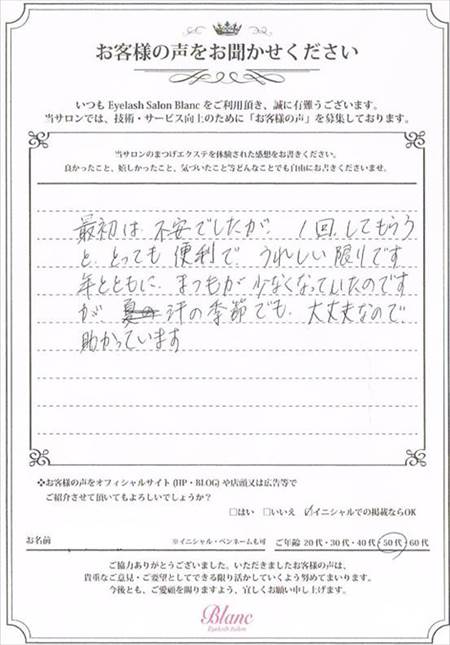 お客様の声をお聞かせください
いつも Eyelash Salon Blanc をご利用頂き、誠に有難うございます。
当サロンでは、技術・サービス向上のために「お客様の声」を募集しております。
当サロンのまつげエクステを体験された感想をお書きください。
良かったこと、嬉しかったこと、気づいたこと等どんなことでも自由にお書きくださいませ。
最初は 不安でしたが 1回 してもらう
と とっても 便利で うれしい限りです
年とともに まつ毛が 少なくなっていたのです
が 汗の季節でも 大丈夫なので
助かっています
❖お客様の声をオフィシャルサイト(HP・BLOG)や店頭又は広告等で
ご紹介させて頂いてもよろしいでしょうか？
□はい □いいえ ☑イニシャルでの掲載ならOK
お名前 ※イニシャル・ペンネームも可 ご年齢 20代・30代・40代・50代・60代
ご協力ありがとうございました。いただきましたお客様の声は、
貴重なご意見・ご要望としてできる限り活かしていくよう努めてまいります。
今後とも、ご愛顧を賜りますよう、宜しくお願い申し上げます。
Blanc
Eyelash Salon